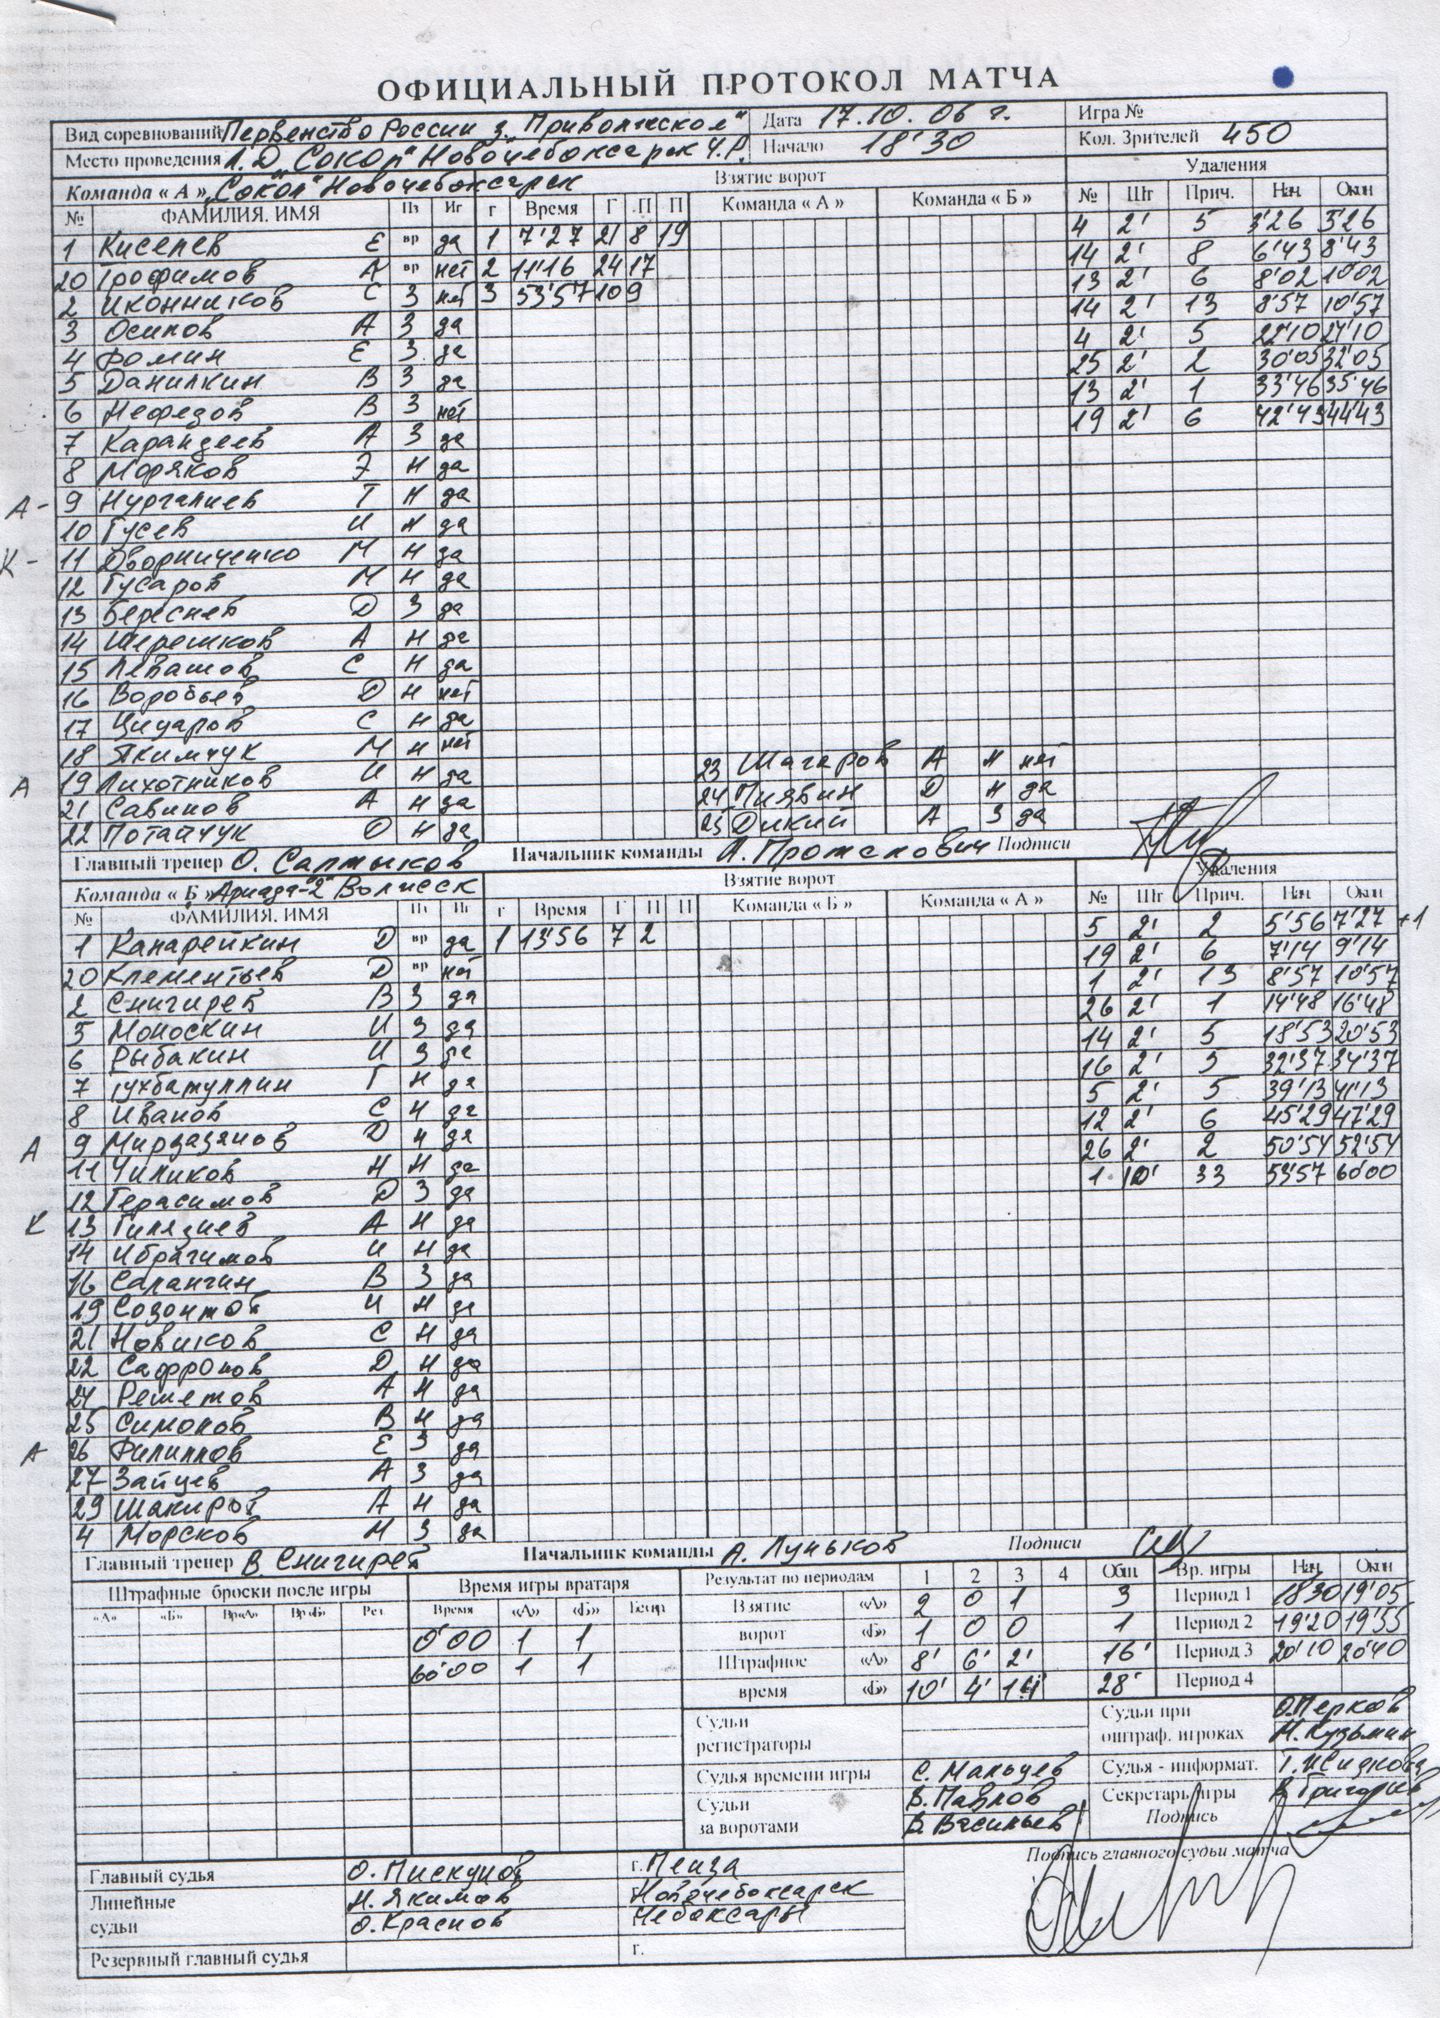 ОФИЦИАЛЬНЫЙ ПРОТОКОЛ МАТЧА
Вид соревнований Первенство России з. "Приволжском" Дата 17.10.06 г. Игра №
Место проведения Л.Д. "Сокол" Новочебоксарск Ч.Р. Начало 18'30 Кол. Зрителей 450
Команда « А » "Сокол" Новочебоксарск Взятие ворот Удаления
№ ФАМИЛИЯ. ИМЯ Пз Иг г Время Г П П Команда « А » Команда « Б » № Шт Прич. Нач. Окон
1 Киселев Е вр да 1 7'27 21 8 19 4 2' 5 3'26 5'26
20 Трофимов А вр нет 2 11'16 24 17 14 2' 8 6'43 8'43
2 Иконников С З нет 3 53'57 10 9 13 2' 6 8'02 10'02
3 Осипов А З да 14 2' 13 8'57 10'57
4 Фомин Е З да 4 2' 5 22'10 24'10
5 Данилкин В З да 25 2' 2 30'05 32'05
6 Нефедов В З нет 13 2' 1 33'46 35'46
7 Карандеев А З да 19 2' 6 42'43 44'43
8 Моряков Э Н да
А - 9 Нургалиев Т Н да
10 Гусев И Н да
К - 11 Дворниченко М Н да
12 Гусаров М Н да
13 Береснев Д З да
14 Шерешков А Н да
15 Левашов С Н да
16 Воробьев Д Н нет
17 Цицаров С Н да
18 Якимчук М Н нет 23 Шагаров А Н нет
А 19 Лихотников И Н да 24 Пиявин Д Н да
21 Савинов А Н да 25 Дикий А З да
22 Потайчук О Н да
Главный тренер О. Салтыков Начальник команды А. Протскович Подписи
Команда « Б » Ариада-"2" Волжск Взятие ворот Удаления
№ ФАМИЛИЯ. ИМЯ Пз Иг г Время Г П П Команда « Б » Команда « А » № Шт Прич. Нач. Окон
1 Канарейкин Д вр да 1 13'56 7 2 5 2' 2 5'56 7'27 +1
20 Клементьев Д вр нет 19 2' 6 7'14 9'14
2 Снигирев В З да 1 2' 13 8'57 10'57
5 Моноскин И З да 26 2' 1 14'48 16'48
6 Рыбакин И З да 14 2' 5 18'53 20'53
7 Тухбатуллин Г Н да 16 2' 5 32'37 34'37
8 Иванов С Н да 5 2' 5 39'13 41'13
А 9 Мирзазянов Д Н да 12 2' 6 45'29 47'29
11 Чиликов Н Н да 26 2' 2 50'54 52'54
12 Герасимов Д З да 1 10' 33 53'57 60'00
К 13 Гилязиев А Н да
14 Ибрагимов И Н да
16 Салангин В З да
19 Созонтов И Н да
21 Новиков С Н да
22 Сафронов Д Н да
24 Решетов А Н да
25 Симонов В Н да
А 26 Филиппов Е З да
27 Зайцев А З да
29 Шакиров А Н да
4 Морсков М З да
Главный тренер В Снигирев Начальник команды А. Луньков Подписи
Штрафные броски после игры Время игры вратаря Результат по периодам 1 2 3 4 Общ. Вр. игры Нач. Окон
«А» «Б» Вр«А» Вр«Б» Рез. Время «А» «Б» Взятие «А» 2 0 1 3 Период 1 18'30 19'05
0'00 1 1 ворот «Б» 1 0 0 1 Период 2 19'20 19'55
60'00 1 1 Штрафное «А» 8' 6' 2' 16' Период 3 20'10 20'40
время «Б» 10' 4' 14 28' Период 4
Судьи регистраторы Судьи при оштраф. игроках О.Перков
М. Кузьмин
Судья времени игры С. Мальцев Судья - информат. Т. Исидкова
Судьи за воротами В. Павлов Секретарь игры В. Григорьев
В. Васильев Подпись
Главный судья О. Пискунов г. Пенза Подпись главного судьи матча
Линейные Н. Якимов Новочебоксарск
судьи О. Краснов Чебоксары
Резервный главный судья г.